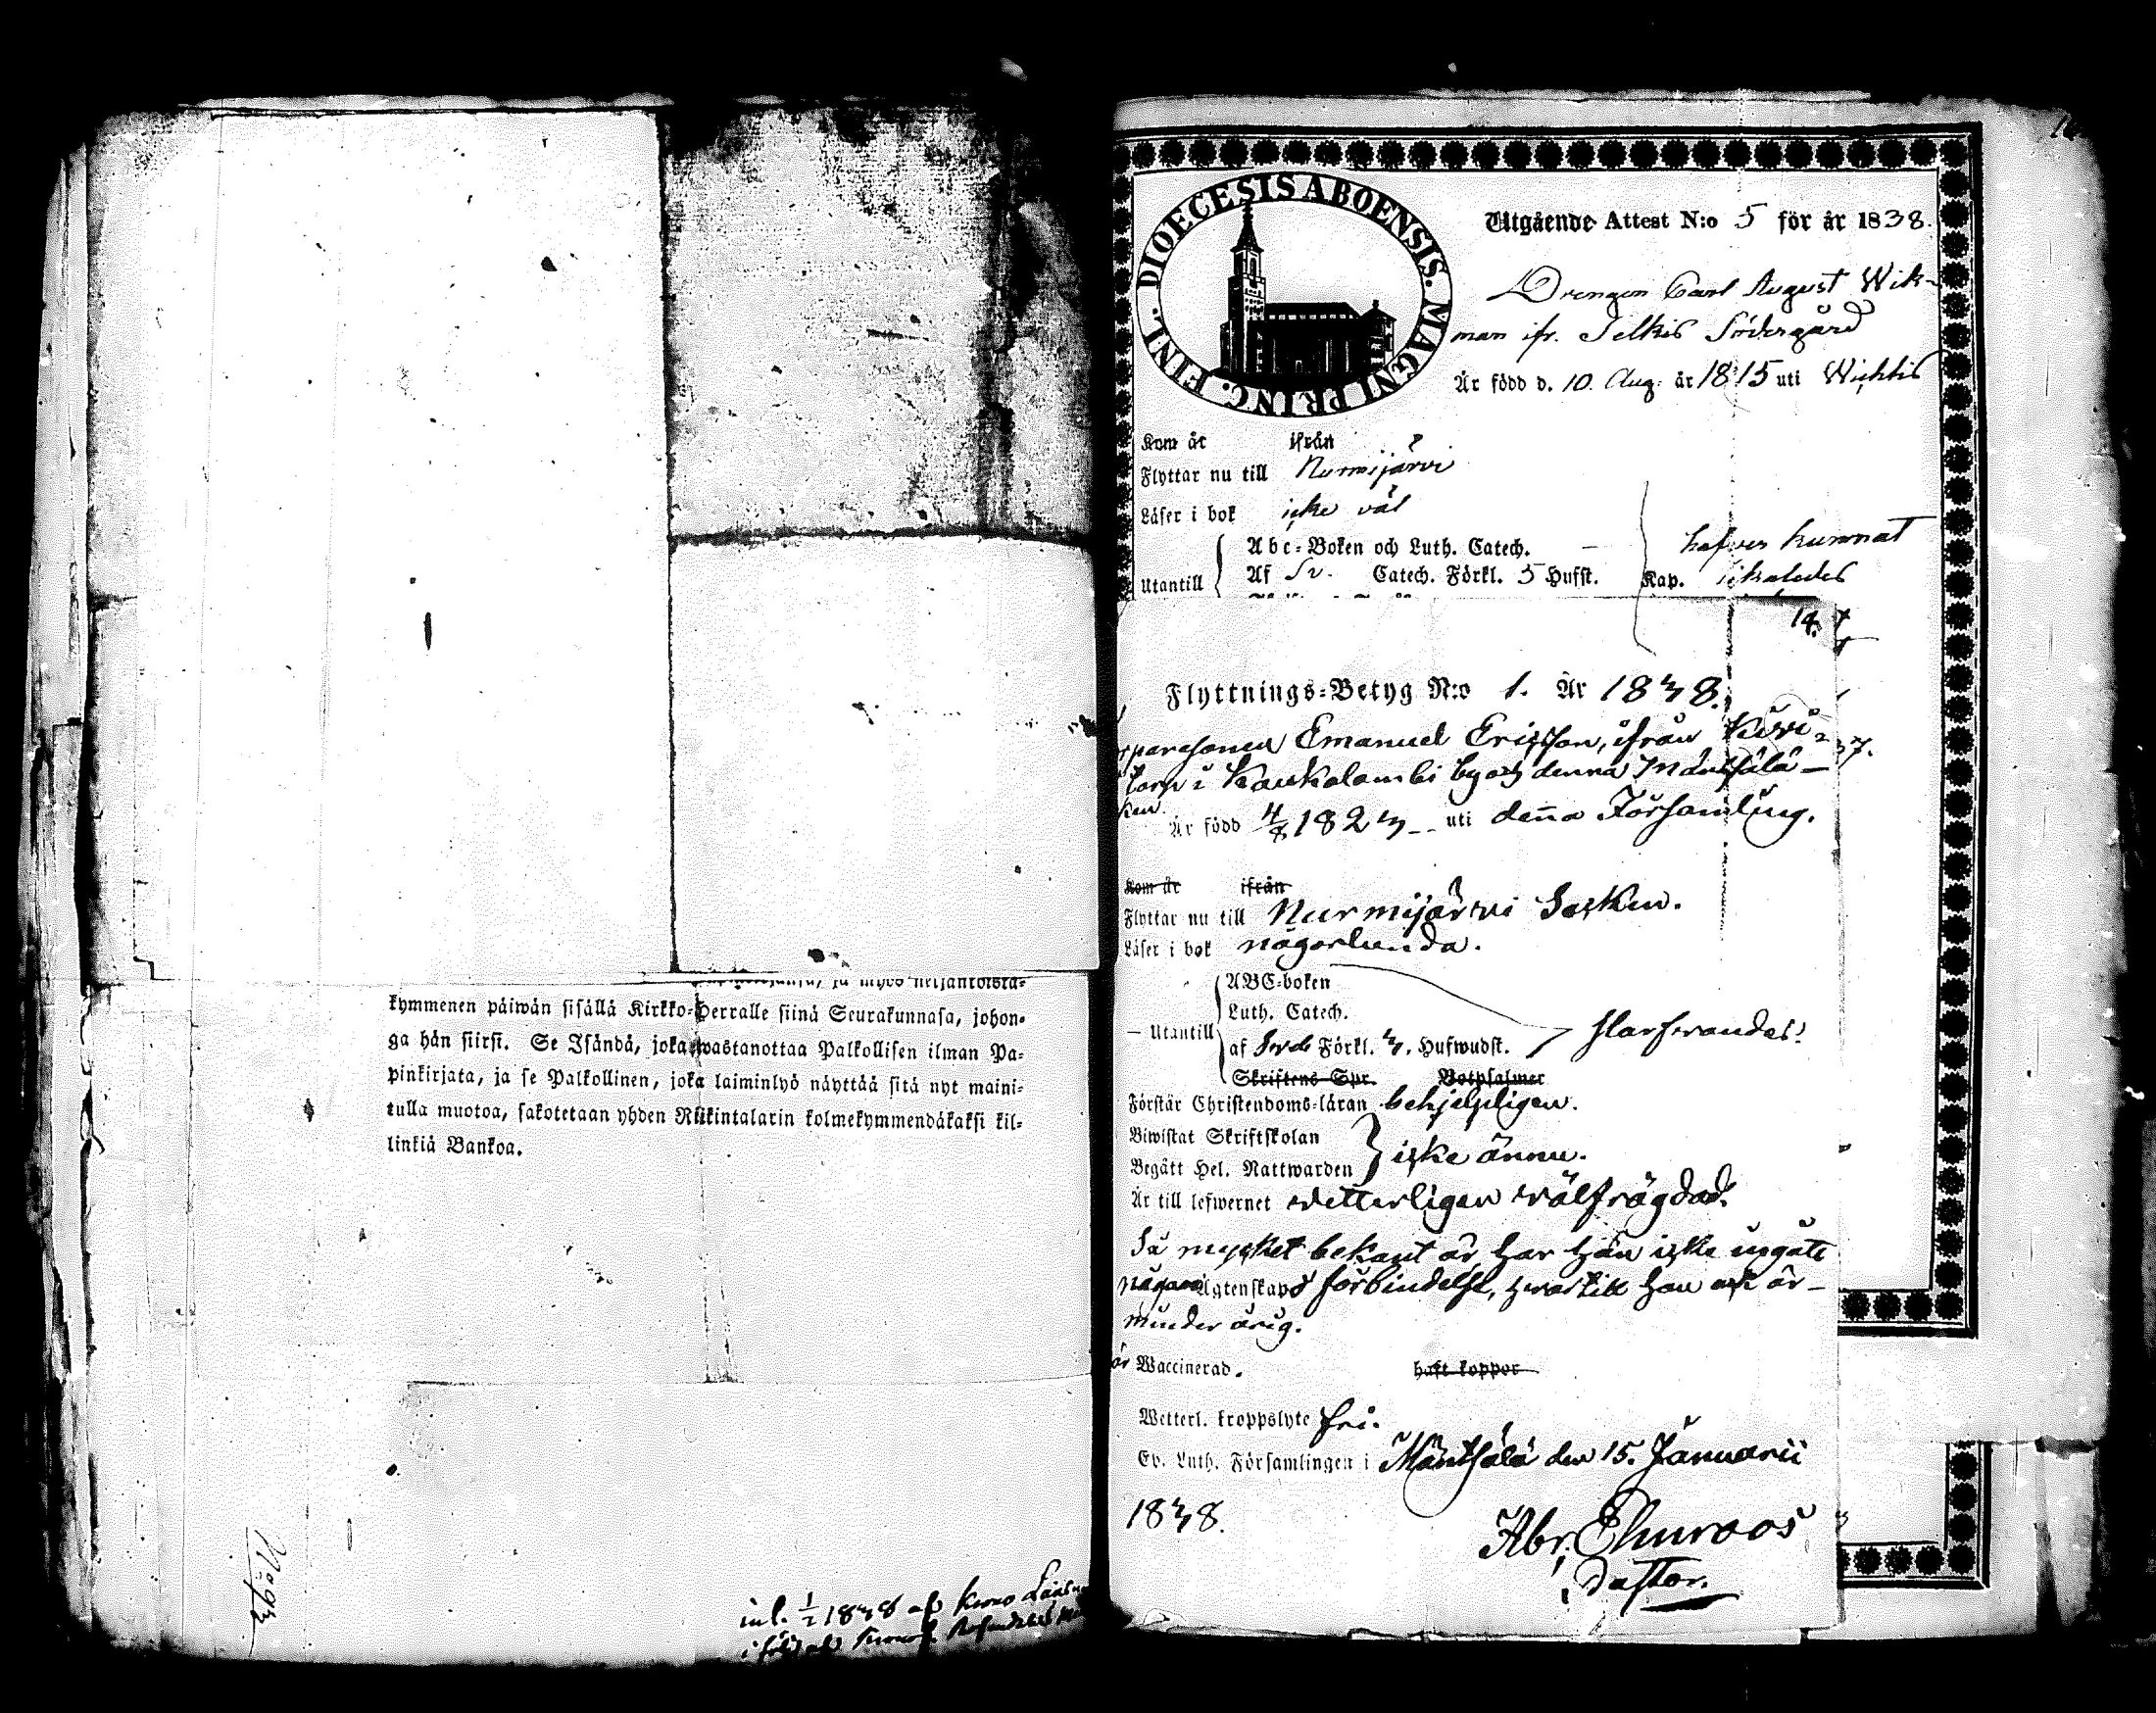 kymmenen päiwän sisällä Kirkko-Herralle siinä Seurakunnasa, johon-
ga hän siirsi. Se Isändä, joka wastanottaa Palkollisen ilman Pa-
pinkirjata, ja se Palkollinen, joka laiminlyö näyttää sitä nyt maini-
tulla muotoa, sakotetaan yhden Riikintalarin kolmekymmendäkaksi kil-
linkiä Bankoa.
inl. 1/2 1838 af
DIOECESIS ABOENSIS. MAGNI PRINC. FINL.
Utgående Attest N:o 5 för år 1838.
Drengen Carl August Wik-
man ifr. Selkis Södergård
Är född d. 10 Aug. år 1815 uti Wichtis
Kom år ifrån
Flyttar nu till Nurmijärvi
Läser i bok icke väl
Abc-Boken och Luth. Catech. — hafver kunnat
Utantill Af Sv. Catech. Förkl. 5 Hufst. Kap.
14.
Flyttnings-Betyg N:o 1. År 1838.
Emanuel Ericsson, ifrån Kivi-
torp i Kaukalambi by och denna Mäntsälä
Är född 4/8 1823 uti denna Församling.
Kom år ifrån
Flyttar nu till Nurmijärvi Socken.
Läser i bok någorlunda.
ABC-boken
Luth. Catech.
Utantill af Förkl. 3. Hufwudst. slarfvandes
Skriftens Spr. Botpsalmer
Förstår Christendoms-läran behjelpligen.
Biwistat Skriftskolan
Begått Hel. Nattwarden icke ännu.
Är till lefwernet vetterligen välfrägdad.
Så mycket bekant är har han icke ingått
någon Ägtenskaps förbindelse, hvartill han är
minder årig.
är Waccinerad. haft koppor
Wetterl. kroppslyte fri.
Ev. Luth. Församlingen i Mäntsälä den 15. Januarii
1838.
Abr.
Pastor.